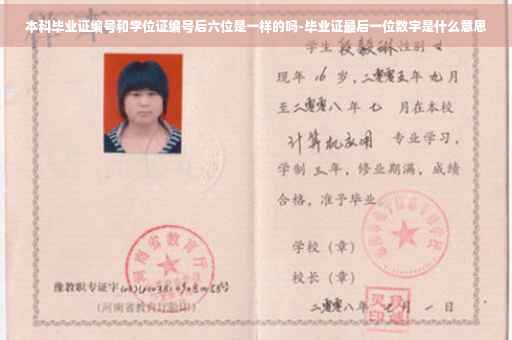 本科毕业证编号和学位证编号后六位是一样的吗-毕业证最后一位数字是什么意思
学生 段毅琳 性别 女
现年 16 岁，二零零五年 九月
至二零零八年 七 月在本校
计算机应用 专业学习，
学制 三年，修业期满，成绩
合格，准予毕业
学校（章）
校长（章）
豫教职专证字
（河南省教育厅验印）
二零零八年 七月 一 日
河南省教育厅